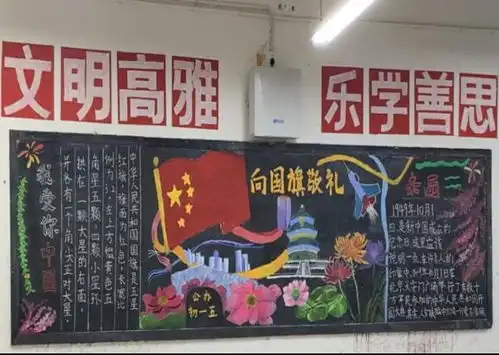 文明高雅
乐学善思
我爱你中国
向国旗敬礼
中华人民共和国国旗是五星
红旗，旗面为红色，长宽比
例为3:2。左上方缀黄色五
角星五颗，四颗小星环
拱在一颗大星的右面，
并各有一个角尖正对大星。
公办
幼一五
1949年10月1
日是新中国成立的
纪念日。这里应该
说明一点，在许多人的
印象中，1949年10月1日在
北京天安门广场举行了有数十